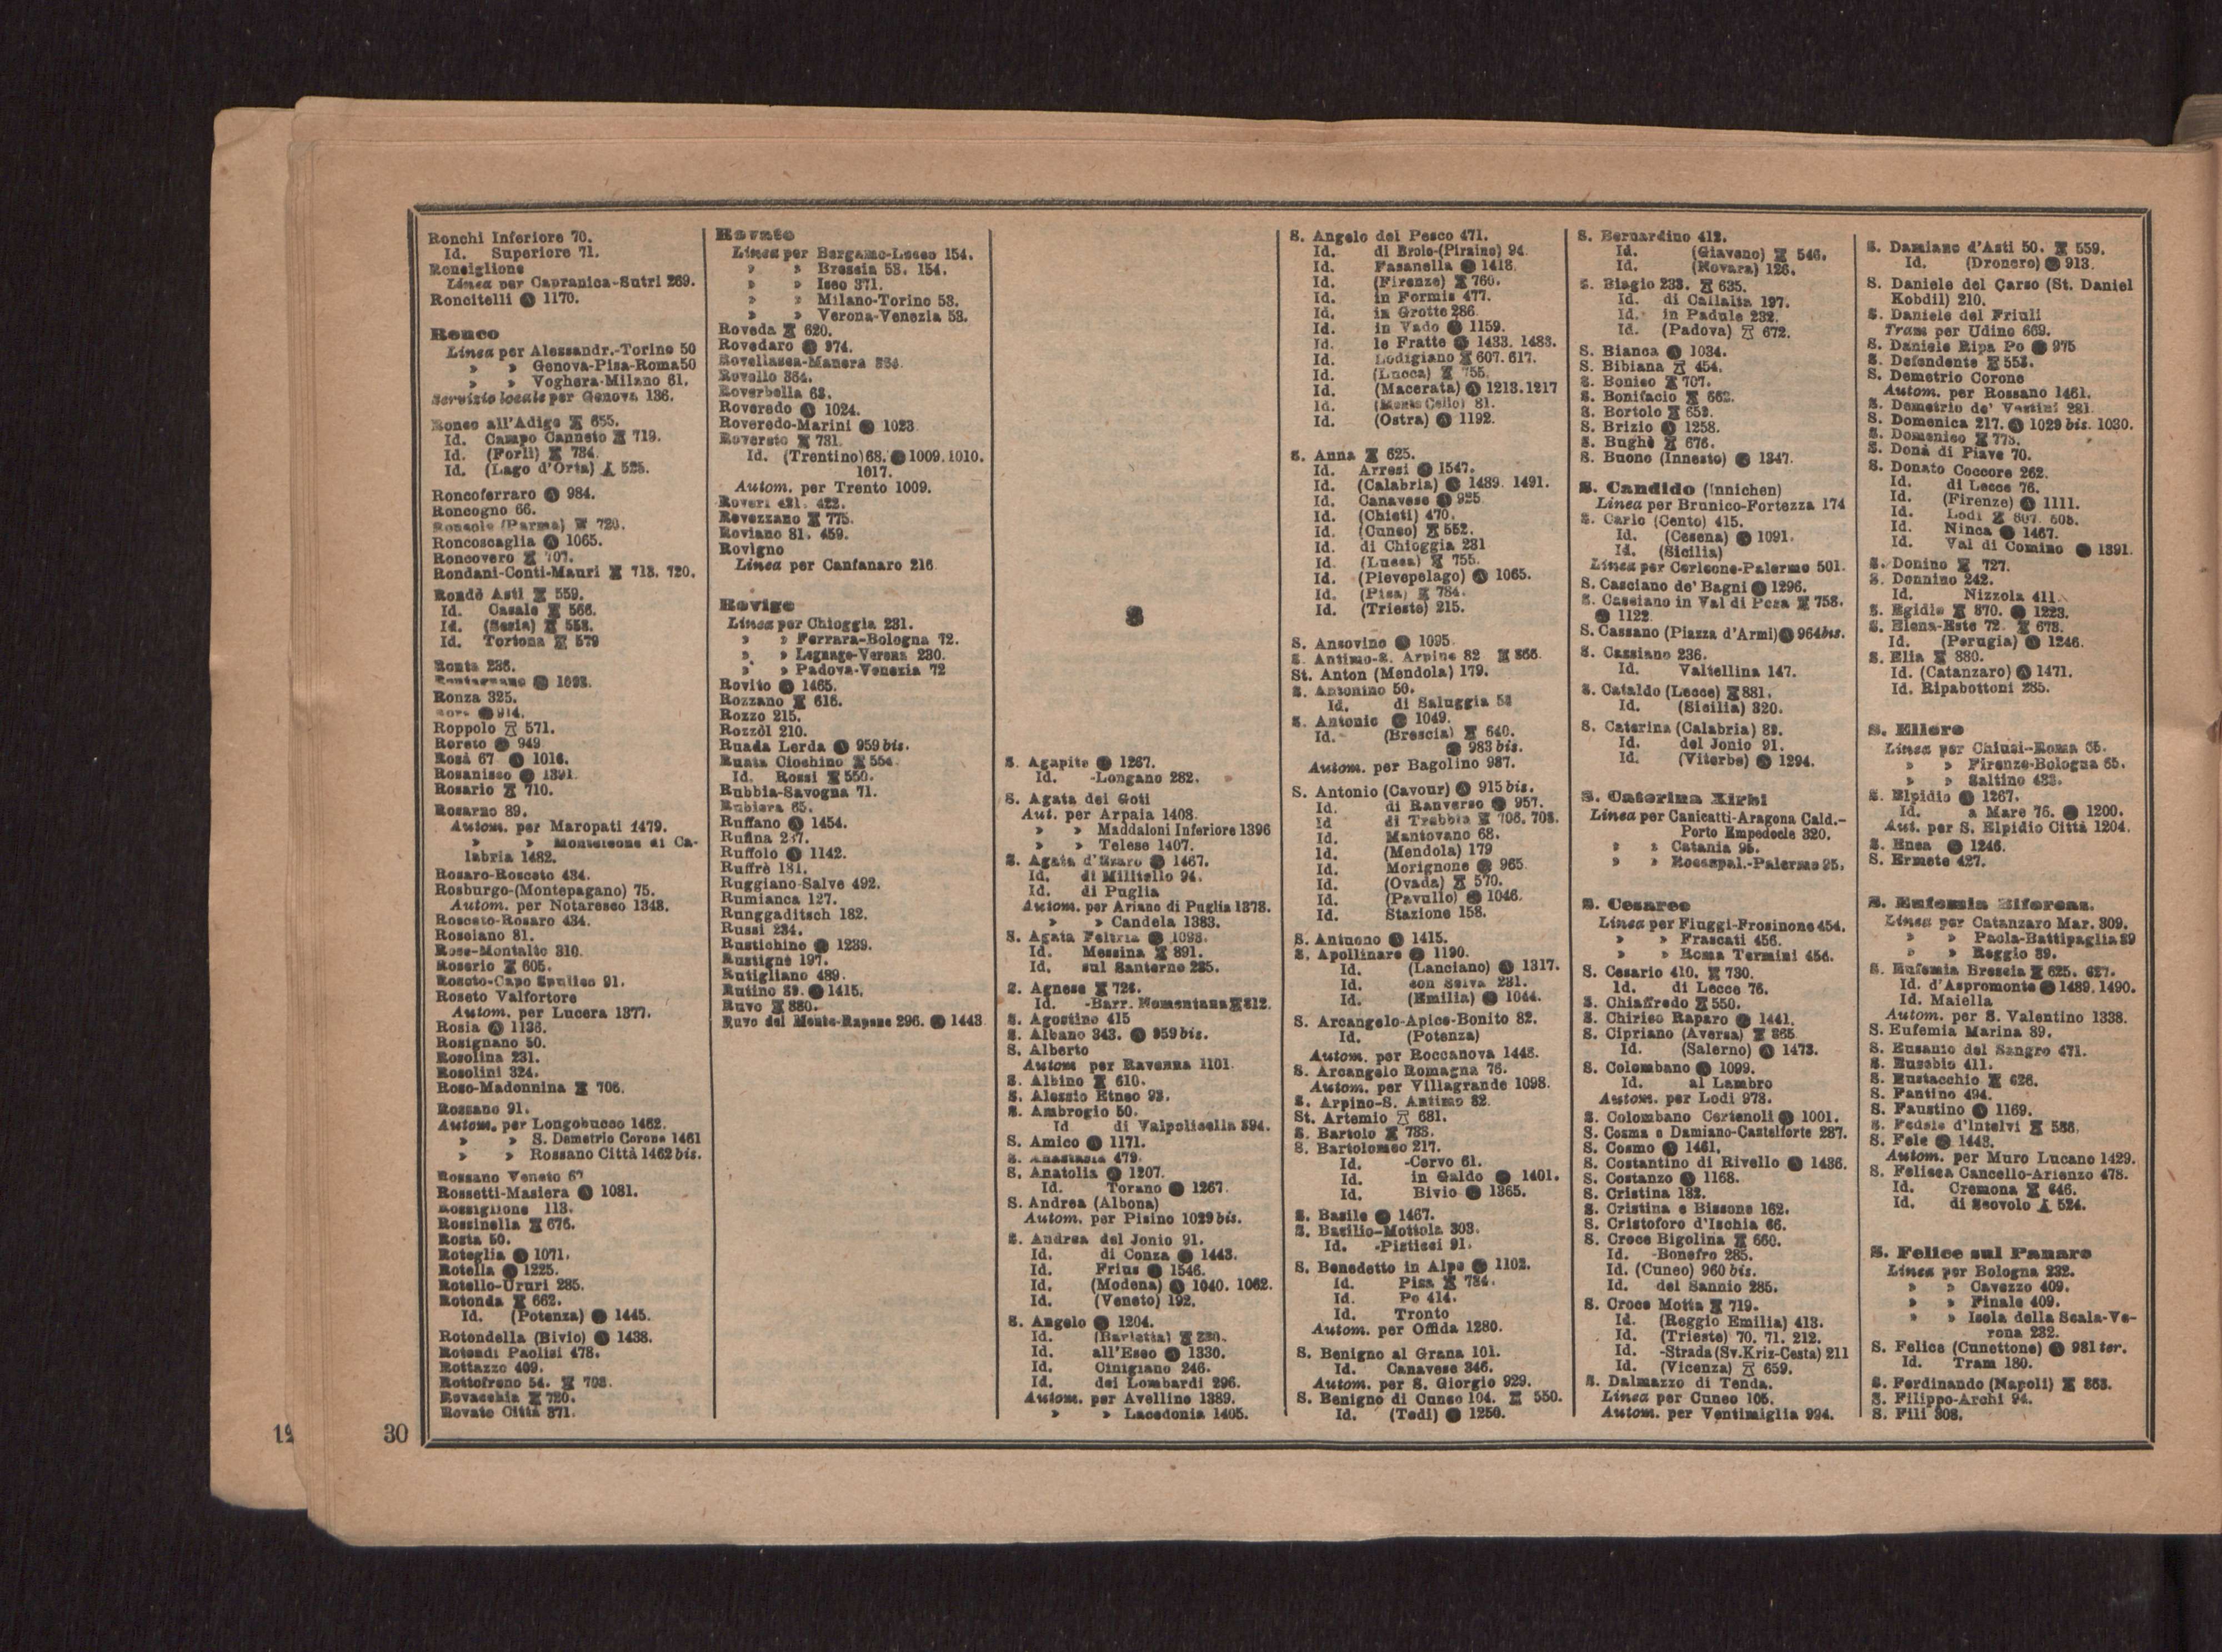 Ronchi Inferiore 70.
Id. Superiore 71.
Ronciglione
Linea per Capranica-Sutri 269.
Roncitelli 1170.
Ronco
Linea per Alessandr.-Torino 50
» » Genova-Pisa-Roma 50
» » Voghera-Milano 61.
Servizio locale per Genova 136.
Ronco all'Adige 655.
Id. Campo Canneto 719.
Id. (Forlì) 784.
Id. (Lago d'Orta) 525.
Roncoferraro 984.
Roncogno 66.
(Parma) 720.
Roncoscaglia 1065.
Roncovero 707.
Rondani-Conti-Mauri 713. 720.
Rondò Asti 559.
Id. Casale 566.
Id. (Sesia) 553.
Id. Tortona 579
Ronta 236.
Ronza 325.
914.
Roppolo 571.
Roreto 949
Rosà 67 1016.
Rosanisco 1391
Rosario 710.
Rosarno 89.
Autom. per Maropati 1479.
» » Monteleone di Ca-
labria 1482.
Rosaro-Rosceto 434.
Rosburgo-(Montepagano) 75.
Autom. per Notaresco 1343.
Rosceto-Rosaro 434.
Rosciano 81.
Rose-Montalto 310.
Roserio 605.
Roseto-Capo Spulico 91.
Roseto Valfortore
Autom. per Lucera 1377.
Rosia 1136.
Rosignano 50.
Rosolina 231.
Rosolini 324.
Roso-Madonnina 706.
Rossano 91.
Autom. per Longobucco 1462.
» » S. Demetrio Corone 1461
» » Rossano Città 1462 bis.
Rossano Veneto 67
Rossetti-Masiera 1081.
Rossiglione 113.
Rossinella 676.
Rosta 50.
Roteglia 1071.
Rotella 1225.
Rotello-Ururi 285.
Rotonda 662.
Id. (Potenza) 1445.
Rotondella (Bivio) 1438.
Rotondi Paolisi 478.
Rottazzo 409.
Rottofreno 54. 703.
Rovacchia 720.
Rovato Città 371.
Rovato
Linea per Bergamo-Lecco 154.
» » Brescia 53. 154.
» » Iseo 371.
» » Milano-Torino 53.
» » Verona-Venezia 53.
Roveda 620.
Rovedaro 974.
Rovellasca-Manera 364.
Rovello 364.
Roverbella 63.
Roveredo 1024.
Roveredo-Marini 1023
Rovereto 731.
Id. (Trentino) 68. 1009. 1010.
1017.
Autom. per Trento 1009.
Roveri 421. 422.
Rovezzano 775.
Roviano 81. 459.
Rovigno
Linea per Canfanaro 216
Rovigo
Linea per Chioggia 231.
» » Ferrara-Bologna 72.
» » Legnago-Verona 230.
» » Padova-Venezia 72
Rovito 1465.
Rozzano 616.
Rozzo 215.
Rozzòl 210.
Ruada Lerda 959 bis.
Ruata Ciochino 554
Id. Rossi 550.
Rubbia-Savogna 71.
Rubiera 65.
Ruffano 1454.
Rufina 237.
Ruffolo 1142.
Ruffrè 181.
Ruggiano-Salve 492.
Rumianca 127.
Runggaditsch 182.
Russi 234.
Rustichino 1239.
Rustignè 197.
Rutigliano 489.
Rutino 89. 1415.
Ruvo 880.
Ruvo del Monte-Rapone 296. 1443
S
S. Agapito 1267.
Id. -Longano 282.
S. Agata dei Goti
Aut. per Arpaia 1408.
» » Maddaloni Inferiore 1396
» » Telese 1407.
S. Agata d'Esaro 1467.
Id. di Militello 94.
Id. di Puglia
Autom. per Ariano di Puglia 1378.
» » Candela 1383.
S. Agata Feltria 1093.
Id. Messina 891.
Id. sul Santerno 235.
S. Agnese 726.
Id. -Barr. Nomentana 812.
S. Agostino 415
S. Albano 343. 959 bis.
S. Alberto
Autom per Ravenna 1101.
S. Albino 610.
S. Alessio Etneo 93.
S. Ambrogio 50.
Id di Valpolicella 394.
S. Amico 1171.
S. Anastasia 479.
S. Anatolia 1207.
Id. Torano 1267.
S. Andrea (Albona)
Autom. per Pisino 1029 bis.
S. Andrea del Jonio 91.
Id. di Conza 1443.
Id. Frius 1546.
Id. (Modena) 1040. 1062.
Id. (Veneto) 192.
S. Angelo 1204.
Id. (Barletta) 230.
Id. all'Esco 1330.
Id. Cinigiano 246.
Id. dei Lombardi 296.
Autom. per Avellino 1389.
» » Lacedonia 1405.
S. Angelo del Pesco 471.
Id. di Brolo-(Piraino) 94.
Id. Fasanella 1418.
Id. (Firenze) 760.
Id. in Formis 477.
Id. in Grotte 286
Id. in Vado 1159.
Id. le Fratte 1433. 1483.
Id. Lodigiano 607. 617.
Id. (Lucca) 755.
Id. (Macerata) 1213. 1217
Id. (Monte Celio) 81.
Id. (Ostra) 1192.
S. Anna 625.
Id. Arresi 1547.
Id. (Calabria) 1489. 1491.
Id. Canavese 925
Id. (Chieti) 470.
Id. (Cuneo) 552.
Id. di Chioggia 231
Id. (Lucca) 755.
Id. (Pievepelago) 1065.
Id. (Pisa) 784.
Id. (Trieste) 215.
S. Ansovino 1095.
S. Antimo-S. Arpino 82 866.
St. Anton (Mendola) 179.
S. Antonino 50.
Id. di Saluggia 53
S. Antonio 1049.
Id. (Brescia) 640.
983 bis.
Autom. per Bagolino 987.
S. Antonio (Cavour) 915 bis.
Id. di Ranverso 957.
Id di Trebbia 706. 708.
Id. Mantovano 68.
Id. (Mendola) 179
Id. Morignone 965
Id. (Ovada) 570.
Id. (Pavullo) 1046.
Id. Stazione 158.
S. Antuono 1415.
S. Apollinare 1190.
Id. (Lanciano) 1317.
Id. con Selva 231.
Id. (Emilia) 1044.
S. Arcangelo-Apice-Bonito 82.
Id. (Potenza)
Autom. per Roccanova 1448.
S. Arcangelo Romagna 76.
Autom. per Villagrande 1098.
S. Arpino-S. Antimo 82.
St. Artemio 681.
S. Bartolo 783.
S. Bartolomeo 217.
Id. -Cervo 61.
Id. in Galdo 1401.
Id. Bivio 1365.
S. Basile 1467.
S. Basilio-Mottola 303.
Id. -Pisticci 91.
S. Benedetto in Alpe 1102.
Id. Pisa 784.
Id. Po 414.
Id. Tronto
Autom. per Offida 1280.
S. Benigno al Grana 101.
Id. Canavese 346.
Autom. per S. Giorgio 929.
S. Benigno di Cuneo 104. 550.
Id. (Todi) 1250.
S. Bernardino 412.
Id. (Giaveno) 546.
Id. (Novara) 126.
S. Biagio 233. 635.
Id. di Callalta 197.
Id. in Padule 232.
Id. (Padova) 672.
S. Bianca 1034.
S. Bibiana 454.
S. Bonico 707.
S. Bonifacio 662.
S. Bortolo 653.
S. Brizio 1258.
S. Bughè 676.
S. Buono (Innesto) 1347.
S. Candido (Innichen)
Linea per Brunico-Fortezza 174
S. Carlo (Cento) 415.
Id. (Cesena) 1091.
Id. (Sicilia)
Linea per Corleone-Palermo 501.
S. Casciano de' Bagni 1296.
S. Casciano in Val di Pesa 758.
1122
S. Cassano (Piazza d'Armi) 964 bis.
S. Cassiano 236.
Id. Valtellina 147.
S. Cataldo (Lecce) 881.
Id. (Sicilia) 320.
S. Caterina (Calabria) 89.
Id. del Jonio 91.
Id. (Viterbo) 1294.
S. Caterina Xirbi
Linea per Canicatti-Aragona Cald.-
Porto Empedocle 320.
» » Catania 95.
» » Roccapal.-Palermo 95.
S. Cesareo
Linea per Fiuggi-Frosinone 454.
» » Frascati 456.
» » Roma Termini 454.
S. Cesario 410. 730.
Id. di Lecce 76.
S. Chiaffredo 550.
S. Chirico Raparo 1441.
S. Cipriano (Aversa) 865
Id. (Salerno) 1473.
S. Colombano 1099.
Id. al Lambro
Autom. per Lodi 978.
S. Colombano Certenoli 1001.
S. Cosma e Damiano-Castelforte 287.
S. Cosmo 1461.
S. Costantino di Rivello 1436.
S. Costanzo 1168.
S. Cristina 182.
S. Cristina e Bissone 162.
S. Cristoforo d'Ischia 66.
S. Croce Bigolina 660.
Id. -Bonefro 285.
Id. (Cuneo) 960 bis.
Id. del Sannio 285.
S. Croce Motta 719.
Id. (Reggio Emilia) 413.
Id. (Trieste) 70. 71. 212.
Id. -Strada (Sv. Kriz-Cesta) 211
Id. (Vicenza) 659.
S. Dalmazzo di Tenda.
Linea per Cuneo 105.
Autom. per Ventimiglia 994.
S. Damiano d'Asti 50. 559.
Id. (Dronero) 913.
S. Daniele del Carso (St. Daniel
Kobdil) 210.
S. Daniele del Friuli
Tram per Udine 669.
S. Daniele Ripa Po 975
S. Defendente 553.
S. Demetrio Corone
Autom. per Rossano 1461.
S. Demetrio de' Vestini 281.
S. Domenica 217. 1029 bis. 1030.
S. Domenico 775.
S. Donà di Piave 70.
S. Donato Coccore 262.
Id. di Lecce 76.
Id. (Firenze) 1111.
Id. Lodi 607. 608.
Id. Ninca 1467.
Id. Val di Comino 1391.
S. Donino 727.
S. Donnino 242.
Id. Nizzola 411.
S. Egidio 870. 1223.
S. Elena-Este 72. 678.
Id. (Perugia) 1246.
S. Elia 880.
Id. (Catanzaro) 1471.
Id. Ripabottoni 285.
S. Ellero
Linea per Chiusi-Roma 65.
» » Firenze-Bologna 65.
» » Saltino 433.
S. Elpidio 1267.
Id. a Mare 76. 1200.
Aut. per S. Elpidio Città 1204.
S. Enea 1246.
S. Ermete 427.
S. Eufemia Biforcaz.
Linea per Catanzaro Mar. 309.
» » Paola-Battipaglia 89
» » Reggio 89.
S. Eufemia Brescia 625. 627.
Id. d'Aspromonte 1489. 1490.
Id. Maiella
Autom. per S. Valentino 1338.
S. Eufemia Marina 89.
S. Eusanio del Sangro 471.
S. Eusebio 411.
S. Eustacchio 626.
S. Fantino 494.
S. Faustino 1169.
S. Fedele d'Intelvi 586.
S. Fele 1443.
Autom. per Muro Lucano 1429.
S. Felice a Cancello-Arienzo 478.
Id. Cremona 646.
Id. di Scovolo 524.
S. Felice sul Panaro
Linea per Bologna 232.
» » Cavezzo 409.
» » Finale 409.
» » Isola della Scala-Ve-
rona 232.
S. Felice (Cunettone) 981 ter.
Id. Tram 180.
S. Ferdinando (Napoli) 863.
S. Filippo-Archi 94.
S. Fili 308.
30